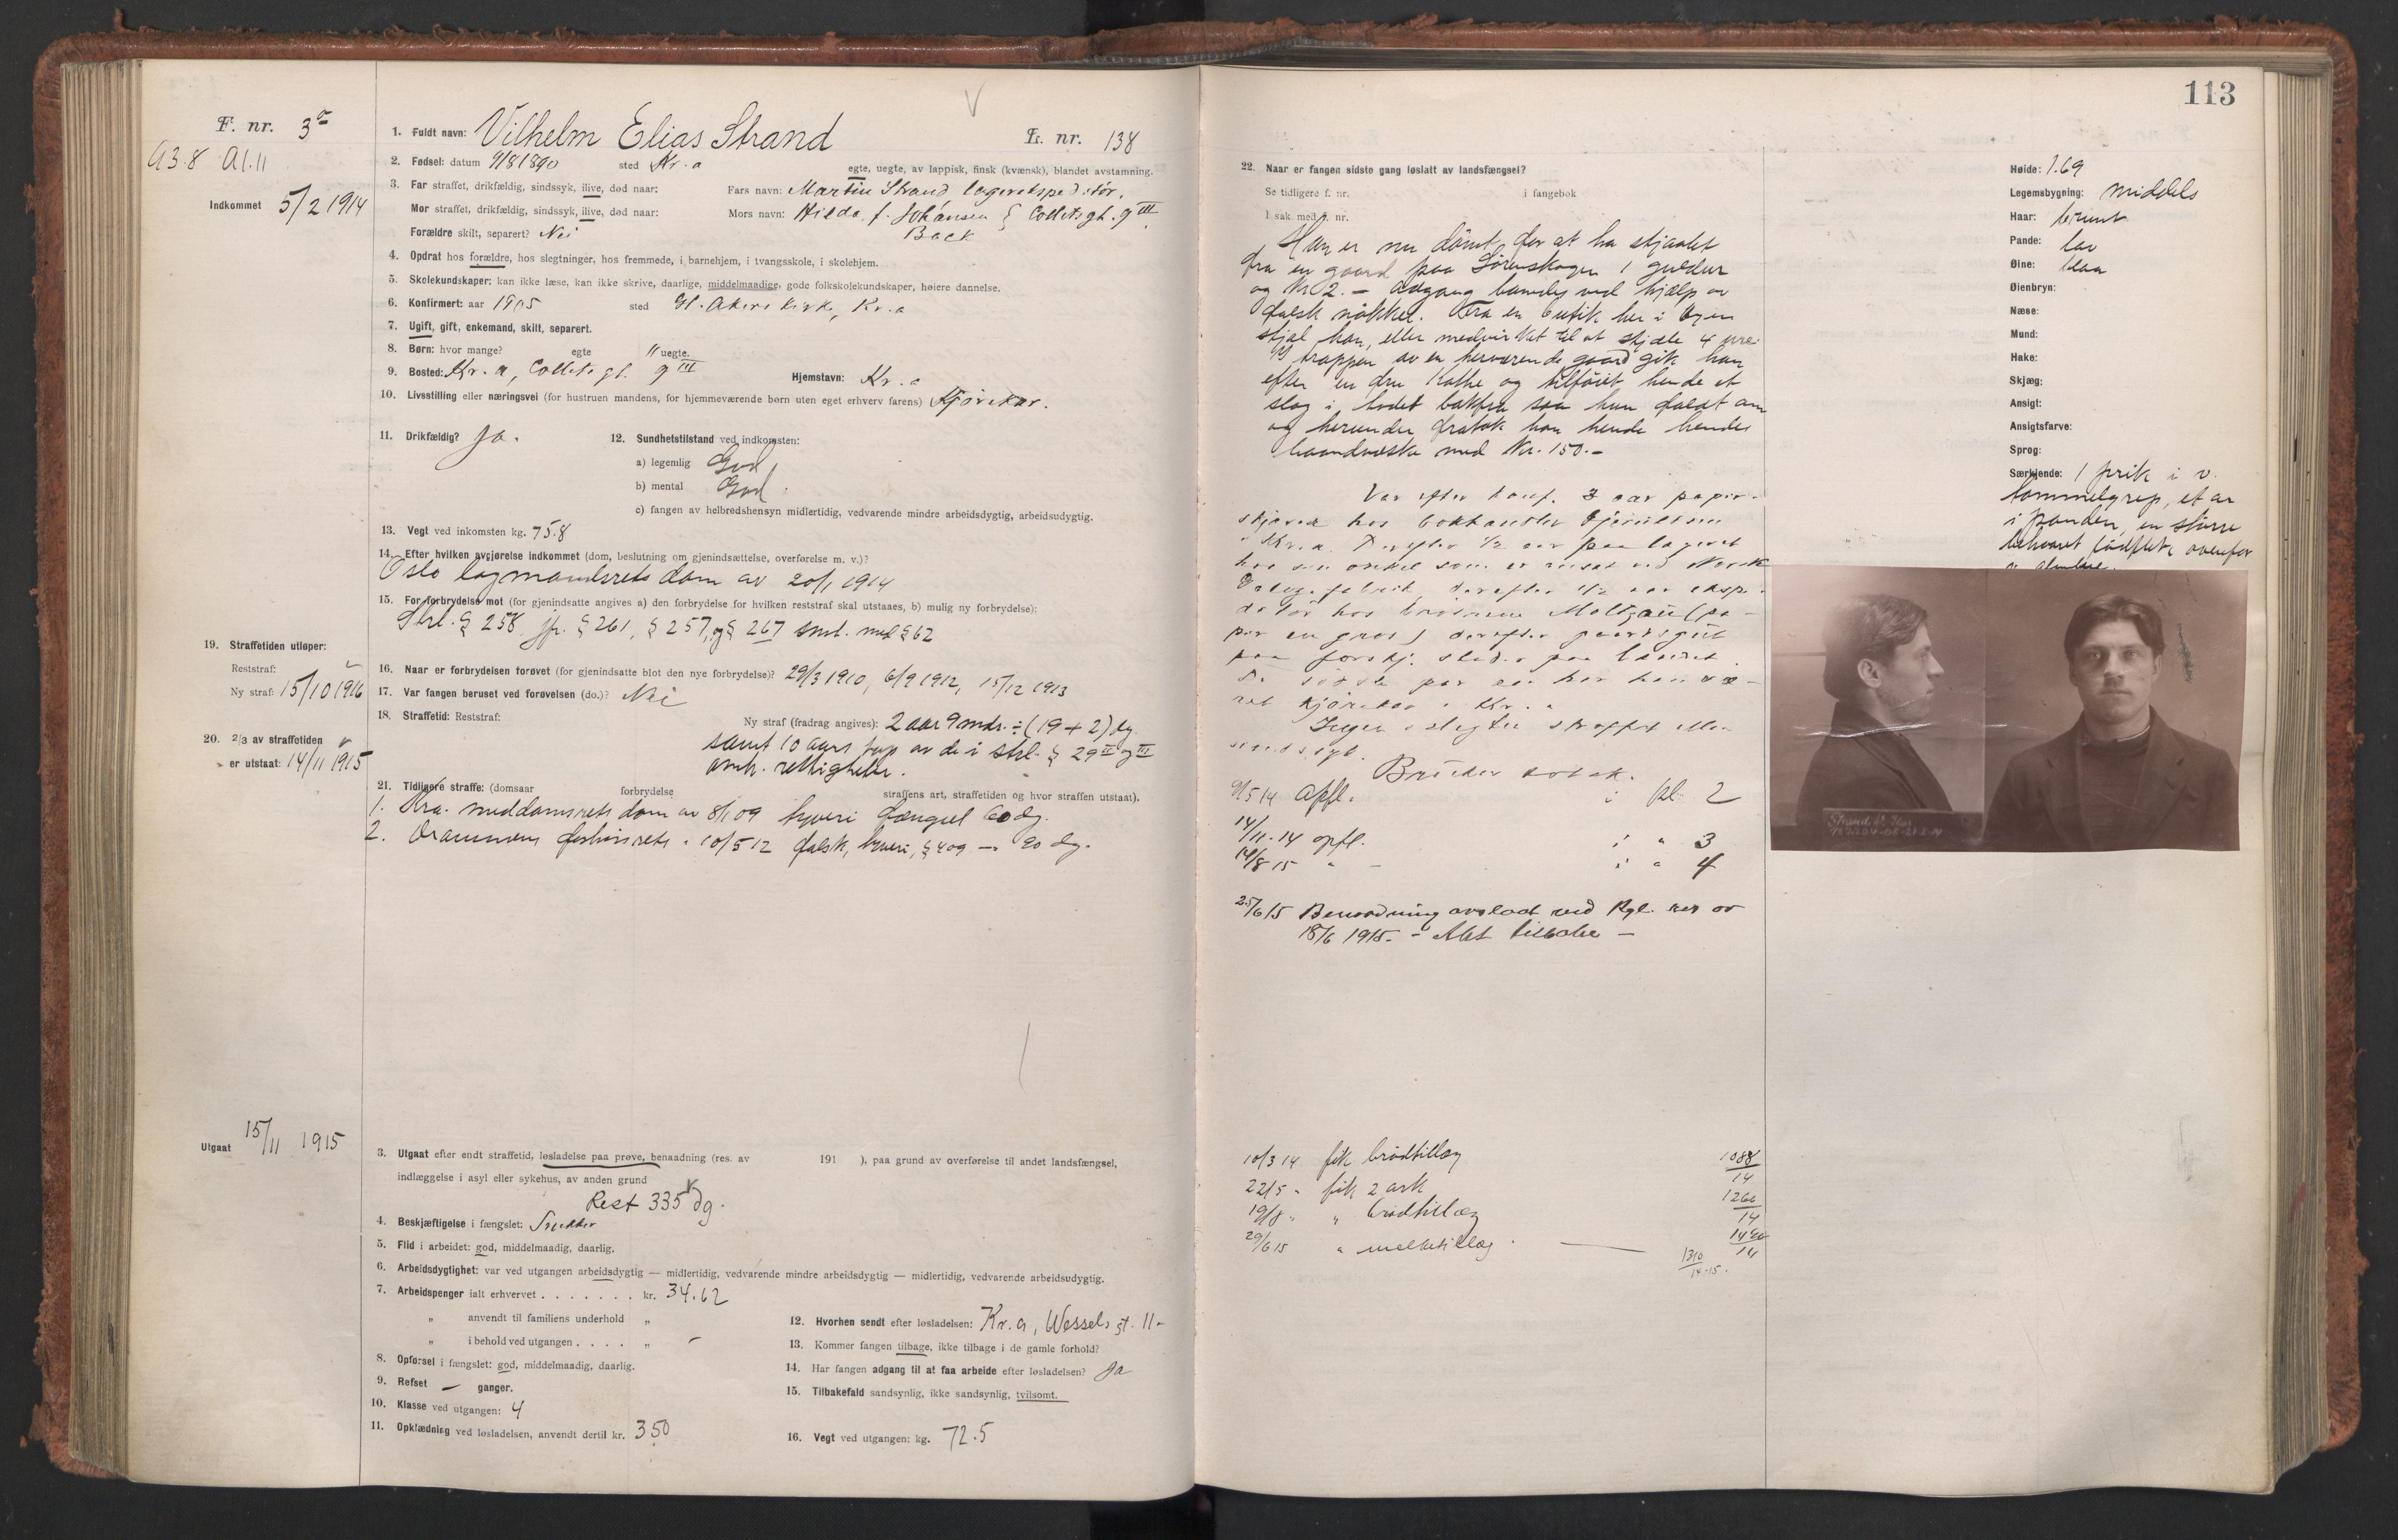 F. nr. 3a
A3.8 A1.11
Indkommet 5/2 1914
19. Straffetiden utløper:
Reststraf:
Ny straf: 15/10 1916
20. 2/3 av straffetiden
er utstaat: 14/11 1915
Utgaat 15/11 1915
1. Fuldt navn: Vilhelm Elias Strand L. nr. 138
2. Fødsel: datum 9/8 1890 sted Kr.a egte, uegte, av lappisk, finsk (kvænsk), blandet avstamning.
3. Far straffet, drikfældig, sindssyk, ilive, død naar: Fars navn: Martin Strand lagerekspeditør.
Mor straffet, drikfældig, sindssyk, ilive, død naar: Mors navn: Hilda f. Johansen Colletsgt. 9 III
Back
Forældre skilt, separert? Nei
4. Opdrat hos forældre, hos slegtninger, hos fremmede, i barnehjem, i tvangsskole, i skolehjem.
5. Skolekundskaper: kan ikke læse, kan ikke skrive, daarlige, middelmaadige, gode folkskolekundskaper, høiere dannelse.
6. Konfirmert: aar 1905 sted Gl. Akers kirke, Kr.a
7. Ugift, gift, enkemand, skilt, separert.
8. Børn: hvor mange? egte " uegte.
9. Bosted: Kr.a, Collets gt. 9 III Hjemstavn: Kr.a
10. Livsstilling eller næringsvei (for hustruen mandens, for hjemmeværende børn uten eget erhverv farens) Kjørekar.
11. Drikfældig? Ja. 12. Sundhetstilstand ved indkomsten:
a) legemlig God
b) mental God.
c) fangen av helbredshensyn midlertidig, vedvarende mindre arbeidsdygtig, arbeidsudygtig.
13. Vegt ved inkomsten kg. 75.8
14. Efter hvilken avgjørelse indkommet (dom, beslutning om gjenindsættelse, overførelse m. v.)?
Oslo lagmandsrets dom av 20/1 1914
15. For forbrydelse mot (for gjenindsatte angives a) den forbrydelse for hvilken reststraf skal utstaaes, b) mulig ny forbrydelse):
Strl. § 258 jfr. § 261, § 257, og § 267 sml. med § 62
16. Naar er forbrydelsen forøvet (for gjenindsatte blot den nye forbrydelse)? 29/3 1910, 6/9 1912, 15/12 1913
17. Var fangen beruset ved forøvelsen (do.)? Nei
18. Straffetid: Reststraf: Ny straf (fradrag angives): 2 aar 9 mdr. ÷ (19 + 2) dg.
samt 10 aars tap av de i strl. § 29 II og III
omh. rettigheter.
21. Tidligere straffe: (domsaar forbrydelse straffens art, straffetiden og hvor straffen utstaat).
1. Kra. meddomsrets dom av 8/1 09 tyveri fængsel 60 dg.
2. Drammens forhørsrets " 10/5 12 falsk, tyveri, § 409 — 90 dg.
3. Utgaat efter endt straffetid, løsladelse paa prøve, benaadning (res. av 191 ), paa grund av overførelse til andet landsfængsel,
indlæggelse i asyl eller sykehus, av anden grund
Rest 335 dg.
4. Beskjæftigelse i fængslet: Snekker
5. Flid i arbeidet: god, middelmaadig, daarlig.
6. Arbeidsdygtighet: var ved utgangen arbeidsdygtig — midlertidig, vedvarende mindre arbeidsdygtig — midlertidig, vedvarende arbeidsudygtig.
7. Arbeidspenger ialt erhvervet . . . . . . . kr. 34.62
" anvendt til familiens underhold "
" i behold ved utgangen . . . . " –
8. Opførsel i fængslet: god, middelmaadig, daarlig.
9. Refset — ganger.
10. Klasse ved utgangen: 4
11. Opklædning ved løsladelsen, anvendt dertil kr. 3.50
12. Hvorhen sendt efter løsladelsen: Kr.a, Wessels gt. 11–
13. Kommer fangen tilbage, ikke tilbage i de gamle forhold?
14. Har fangen adgang til at faa arbeide efter løsladelsen? Ja
15. Tilbakefald sandsynlig, ikke sandsynlig, tvilsomt.
16. Vegt ved utgangen: kg. 72.5
113
22. Naar er fangen sidste gang løslatt av landsfængsel?
Se tidligere f. nr. i fangebok
I sak med f. nr.
Han er nu dømt for at ha stjaalet
fra en gaard paa Lørenskogen 1 guldur
og Kr. 2. – Adgang banedes ved hjælp av
falsk nøkkel. Fra en butik her i byen
stjal han, eller medvirket til at stjæle 4 ure.
I trappen av en herværende gaard gik han
efter en fru Rathe og tilføiet hende et
slag i hodet bakfra saa hun faldt om
og herunder fratok han hende hendes
haandveske med Kr. 150.–
Var efter konf. 3 aar papir-
skjærer hos bokhandler
i Kr.a. Derefter 1/2 aar paa lageret
hos sin onkel som er ansat ved Norsk
fabrik, derefter 1 1/2 aar ekspe-
ditør hos brødrene Moltzau (pa-
pir en gros) derefter gaardsgut
paa forskj. steder paa landet.
De sidste par aar har han væ-
ret kjørekar i Kr.a
Ingen i slegten straffet eller
sindssyk.
9/5 14 Opfl. i kl. 2
14/11-14 opfl. i " 3
14/8 15 " – i " 4
25/6 15 Benaadning avslaat ved Kgl. res av
18/6 1915. – Akt tilbake –
10/3 14 fik brødtillæg 1088/14
22/5 " fik 2 ark 1266/14
19/8 " " brødtillæg
29/6 15 " melketillæg 1310/14-15.
Høide: 1.69
Legemsbygning: middels
Haar: brunt
Pande: lav
Øine: blaa
Øienbryn:
Næse:
Mund:
Hake:
Skjæg:
Ansigt:
Ansigtsfarve:
Sprog:
Særkjende: 1 prik i v.
tommelgrep, et ar
i panden, en større
behaaret fødflek ovenfor